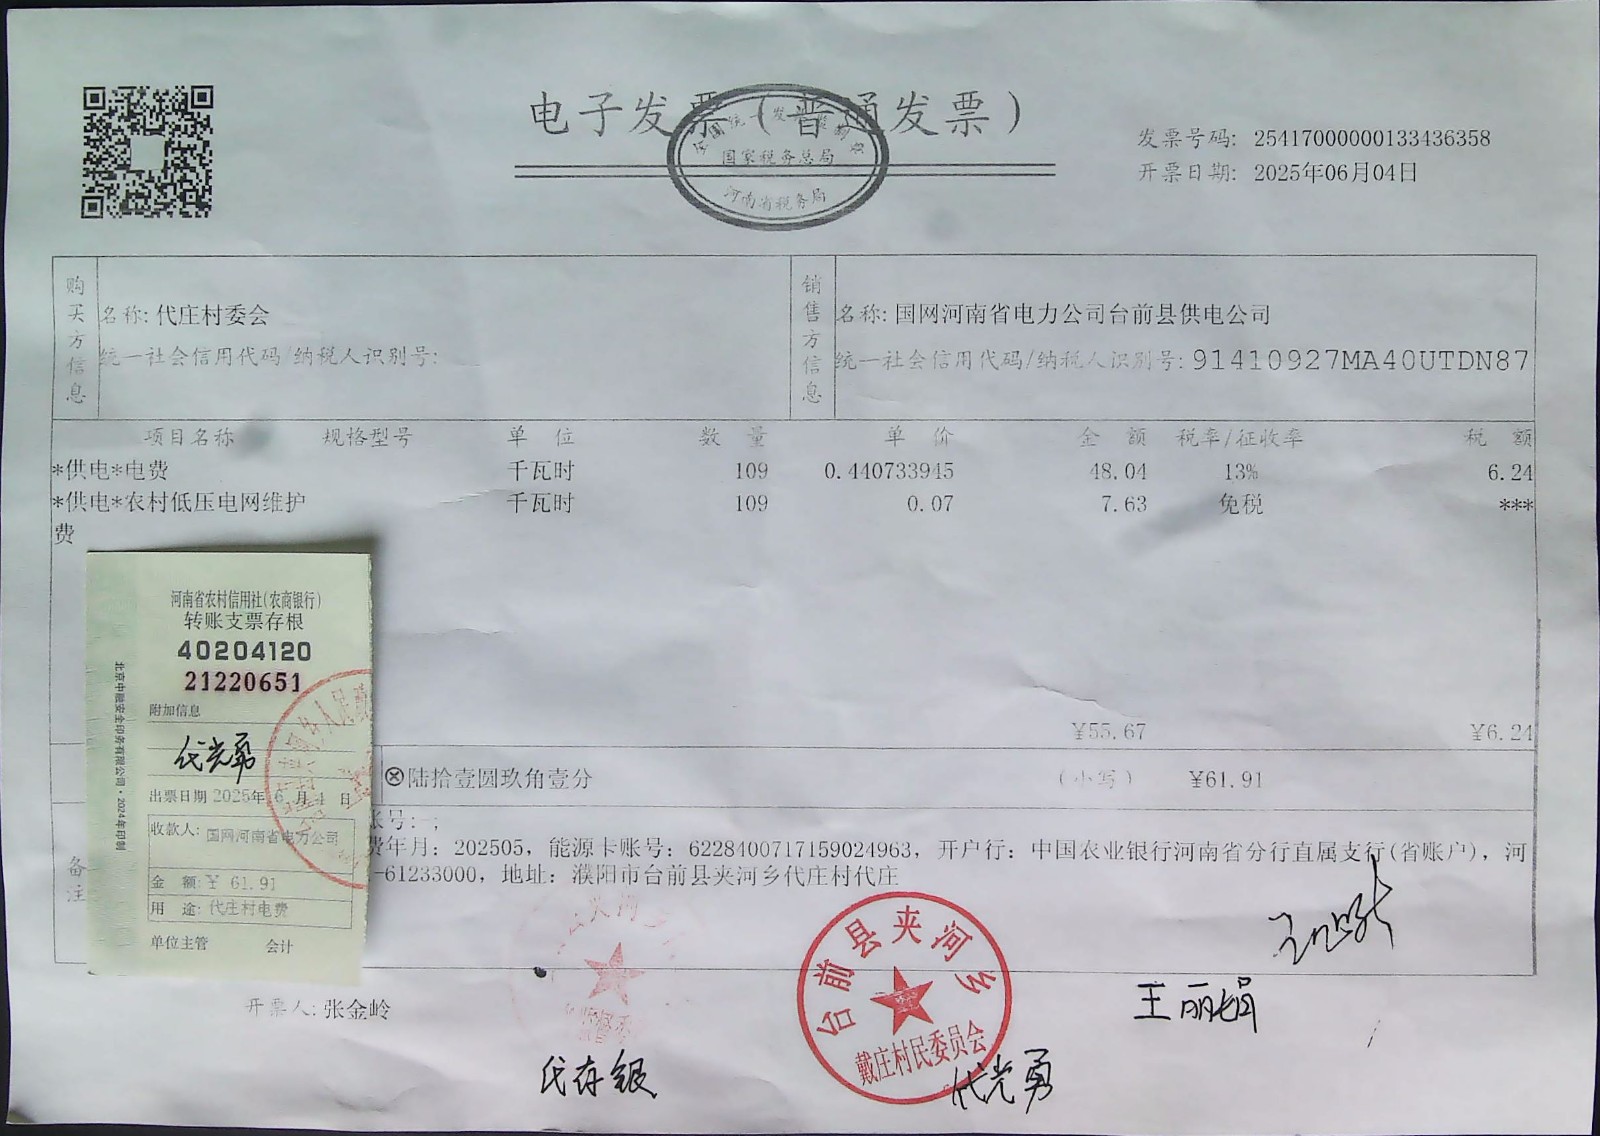 电子发票（普通发票）
全国统一发票监制章
国家税务总局
河南省税务局
发票号码: 25417000000133436358
开票日期: 2025年06月04日
购买方信息
名称: 代庄村委会
统一社会信用代码/纳税人识别号:
销售方信息
名称: 国网河南省电力公司台前县供电公司
统一社会信用代码/纳税人识别号: 91410927MA40UTDN87
项目名称 规格型号 单位 数量 单价 金额 税率/征收率 税额
*供电*电费 千瓦时 109 0.440733945 48.04 13% 6.24
*供电*农村低压电网维护 千瓦时 109 0.07 7.63 免税 ***
费
¥55.67 ¥6.24
ⓧ陆拾壹圆玖角壹分 （小写） ¥61.91
备注
账号:-;
费年月: 202505, 能源卡账号: 6228400717159024963, 开户行: 中国农业银行河南省分行直属支行(省账户), 河
-61233000, 地址: 濮阳市台前县夹河乡代庄村代庄
河南省农村信用社(农商银行)
转账支票存根
40204120
21220651
附加信息
代光勇
出票日期 2025年6月4日
收款人: 国网河南省电力公司
金 额: ¥ 61.91
用 途: 代庄村电费
单位主管 会计
北京中融安全印务有限公司·2024年印制
开票人: 张金岭
台前县夹河乡
戴庄村民委员会
王丽娟
代存银
代光勇